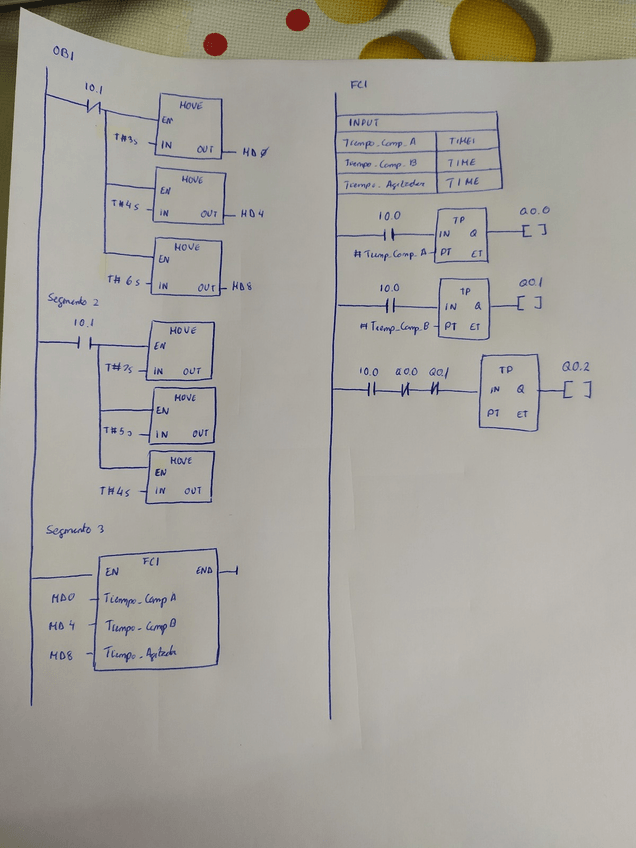 OB1
I0.1
MOVE
EN
T#3s IN OUT MD0
MOVE
EN
T#4s IN OUT MD4
MOVE
EN
T#6s IN OUT MD8
Segmento 2
I0.1
MOVE
EN
T#7s IN OUT
MOVE
EN
T#5s IN OUT
MOVE
EN
T#4s IN OUT
Segmento 3
FC1
EN END
MD0 Tiempo_Comp A
MD4 Tiempo_Comp B
MD8 Tiempo_Agitador
FC1
INPUT
Tiempo_Comp_A TIME
Tiempo_Comp_B TIME
Tiempo_Agitador TIME
I0.0 TP Q0.0
IN Q
#Tiemp_Comp_A PT ET
I0.0 TP Q0.1
IN Q
#Tiemp_Comp_B PT ET
I0.0 Q0.0 Q0.1 TP Q0.2
IN Q
PT ET